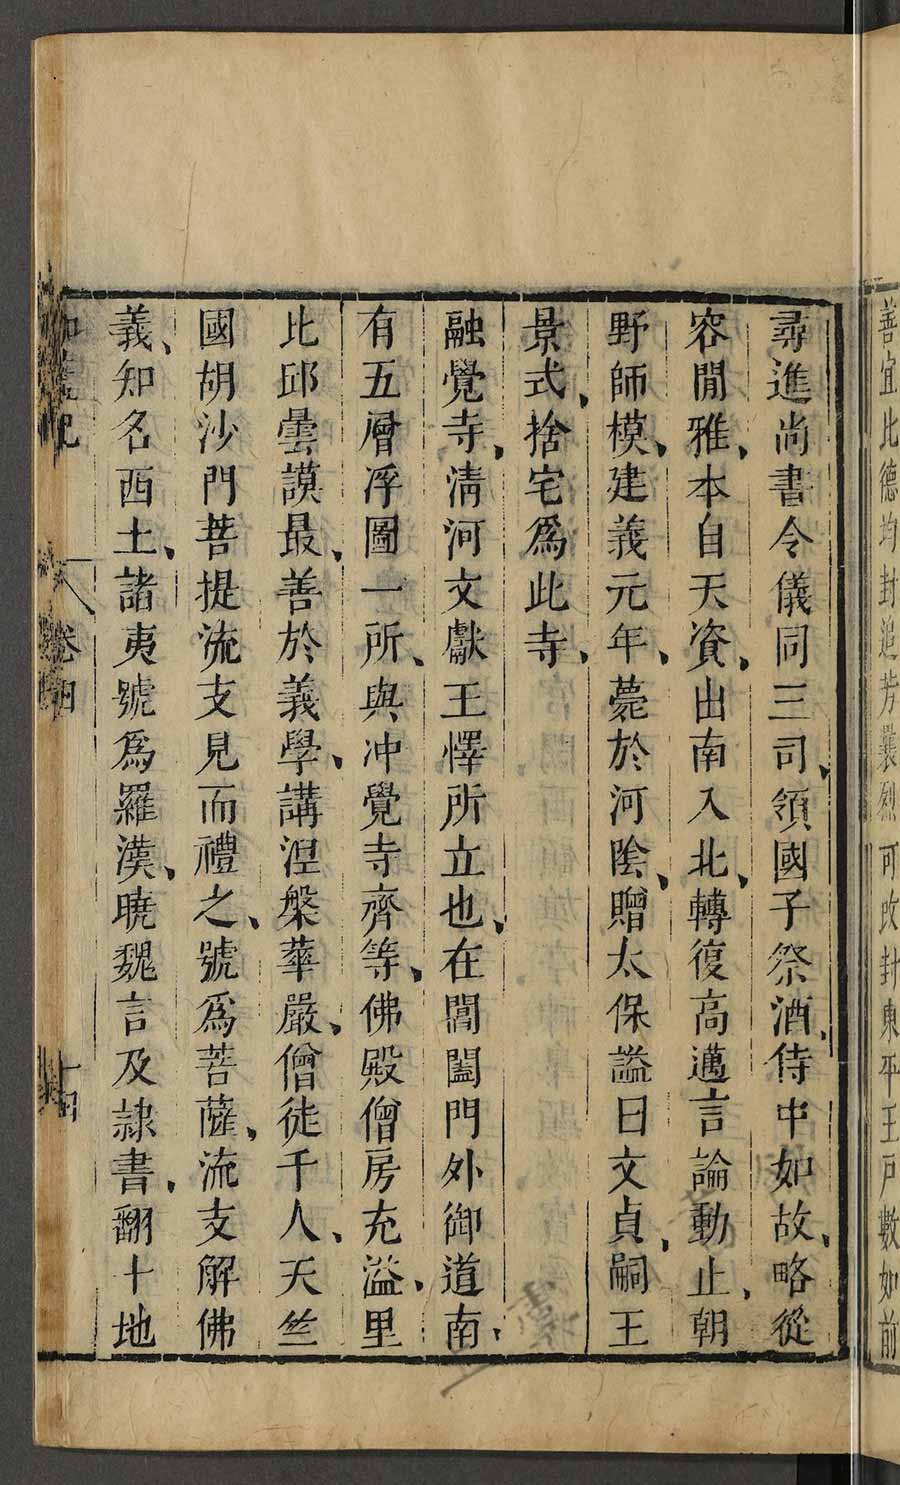 善宜比德均封追芳曩烈可改封東平王戸數如前
尋進尚書令儀同三司、領國子祭酒、侍中如故、略從
容閒雅、本自天資、出南入北、轉復高邁言論動止、朝
野師模、建義元年、薨於河陰、贈太保謚曰文貞、嗣王
景式、捨宅爲此寺、
融覺寺、清河文獻王懌所立也、在閶闔門外御道南、
有五層浮圖一所、與冲覺寺齊等、佛殿僧房充溢、里
比邱曇謨最、善於義學、講涅槃華嚴、僧徒千人、天竺
國胡沙門菩提流支見而禮之、號爲菩薩、流支解佛
義、知名西土、諸夷號爲羅漢、曉魏言及隷書、翻十地
卷四
十四